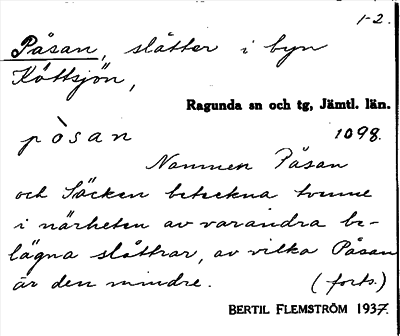 1-2.
Påsan, slåtter i byn
Köttsjön,
Ragunda sn och tg, Jämtl. län.
pòsan 1098.
Namnen Påsan
och Säcken beteckna tvenne
i närheten av varandra be-
lägna slåttrar, av vilka Påsan
är den mindre. (forts.)
BERTIL FLEMSTRÖM 1937.